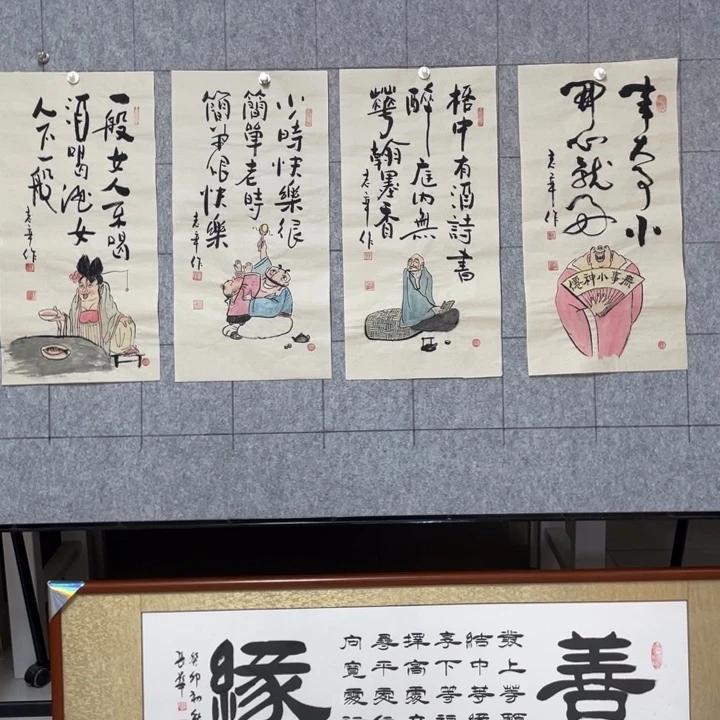 一般女人不喝
酒喝酒女
人不一般
老辛作
小時快樂很
簡單老時
簡單很快樂
老辛作
梧中有酒詩書
醉庭内無
華翰墨香
老辛作
事大事小
開心就好
老辛作
無事小神僊
善
發上等願
結中等緣
享下等福
擇高處立
尋平處住
向寬處行
緣
癸卯初